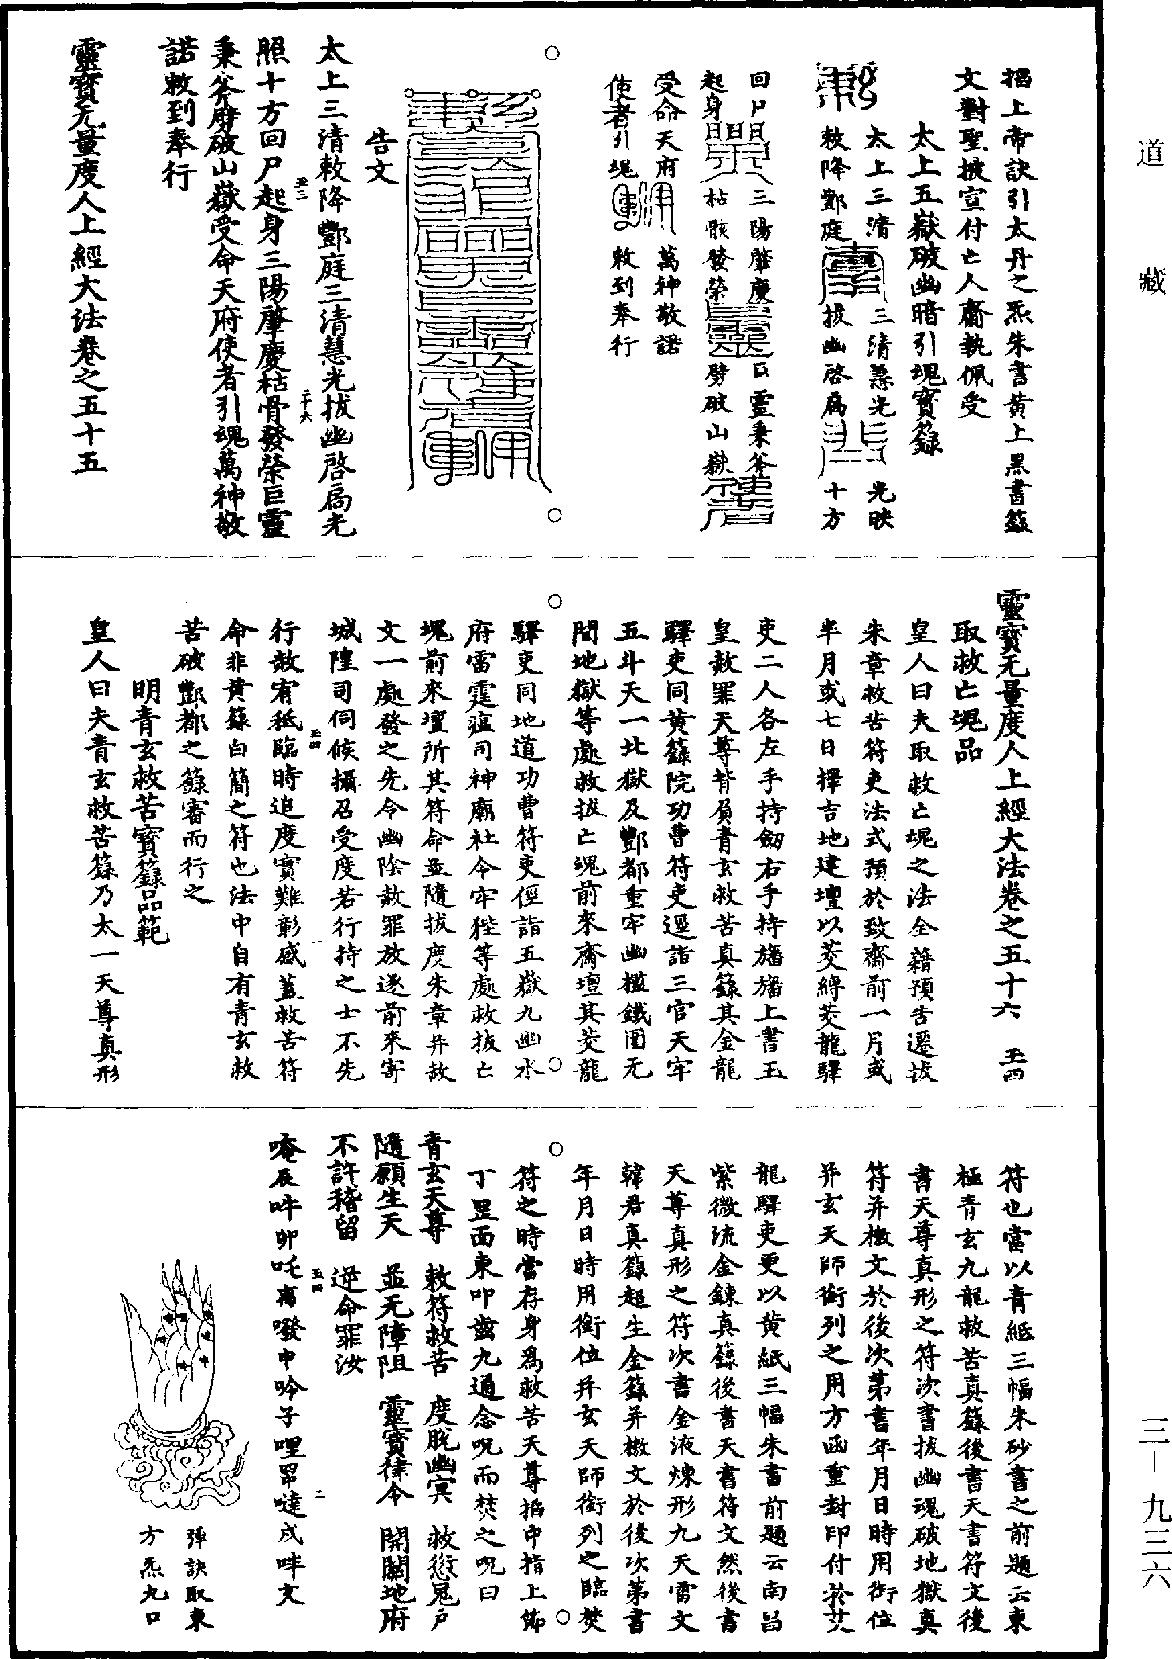 道藏
三—九三六
搯上帝訣引太丹之炁朱書黃上黑書籙
文對聖披宣付亡人齋執佩受
太上五嶽破幽暗引魂寶籙
太上三清
敕降酆庭
三清慧光
拔幽啓扃
光映
十方
回尸
起身
三陽肇慶
枯骸發榮
巨靈秉斧
劈破山嶽
受命天府
使者引魂
萬神敬諾
敕到奉行
告文
太上三清敕降酆庭三清慧光拔幽啓扃光
照十方回尸起身三陽肇慶枯骨發榮巨靈
秉斧劈破山嶽受命天府使者引魂萬神敬
諾敕到奉行
靈寶无量度人上經大法卷之五十五
靈寶无量度人上經大法卷之五十六
取救亡魂品
皇人曰夫取救亡魂之法全藉預告遷拔
朱章救苦符吏法式預於致齋前一月或
半月或七日擇吉地建壇以茭縛茭龍驛
吏二人各左手持劒右手持旛旛上書玉
皇赦罪天尊背負青玄救苦真籙其金龍
驛吏同黃籙院功曹符吏逕詣三官天牢
五斗天一北獄及酆都重牢幽檻鐵圍无
間地獄等處救拔亡魂前來齋壇其茭龍
驛吏同地道功曹符吏徑詣五嶽九幽水
府雷霆瘟司神廟社令牢狴等處救拔亡
魂前來壇所其符命並隨拔度朱章并赦
文一處發之先令幽陰赦罪放逐前來寄
城隍司伺候攝召受度若行持之士不先
行赦宥秪臨時追度實難彰感蓋救苦符
命非黃籙白簡之符也法中自有青玄救
苦破酆都之籙審而行之
明青玄救苦寶籙品範
皇人曰夫青玄救苦籙乃太一天尊真形
符也當以青紙三幅朱砂書之前題云東
極青玄九龍救苦真籙後書天書符文後
書天尊真形之符次書拔幽魂破地獄真
符并檄文於後次第書年月日時用銜位
并玄天師銜列之用方函重封印付於茭
龍驛吏更以黃紙三幅朱書前題云南昌
紫微流金鍊真籙後書天書符文然後書
天尊真形之符次書金液煉形九天雷文
韓君真籙超生金籙并檄文於後次第書
年月日時用銜位并玄天師銜列之臨焚
符之時當存身為救苦天尊搯中指上節
丁罡面東叩齒九通念呪而焚之呪曰
青玄天尊 敕符救苦 度脫幽冥 救愆冤尸
隨願生天 並无障阻 靈寶律令 開闢地府
不許稽留 逆命罪汝
唵辰吽卯吒寅㗶申唥子哩罡噠戌吽文
彈訣取東
方炁九口